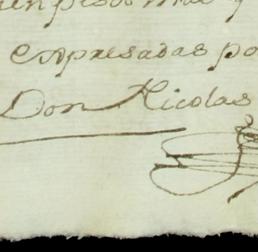 en pesos mil y
expresadas po
Don Nicolas